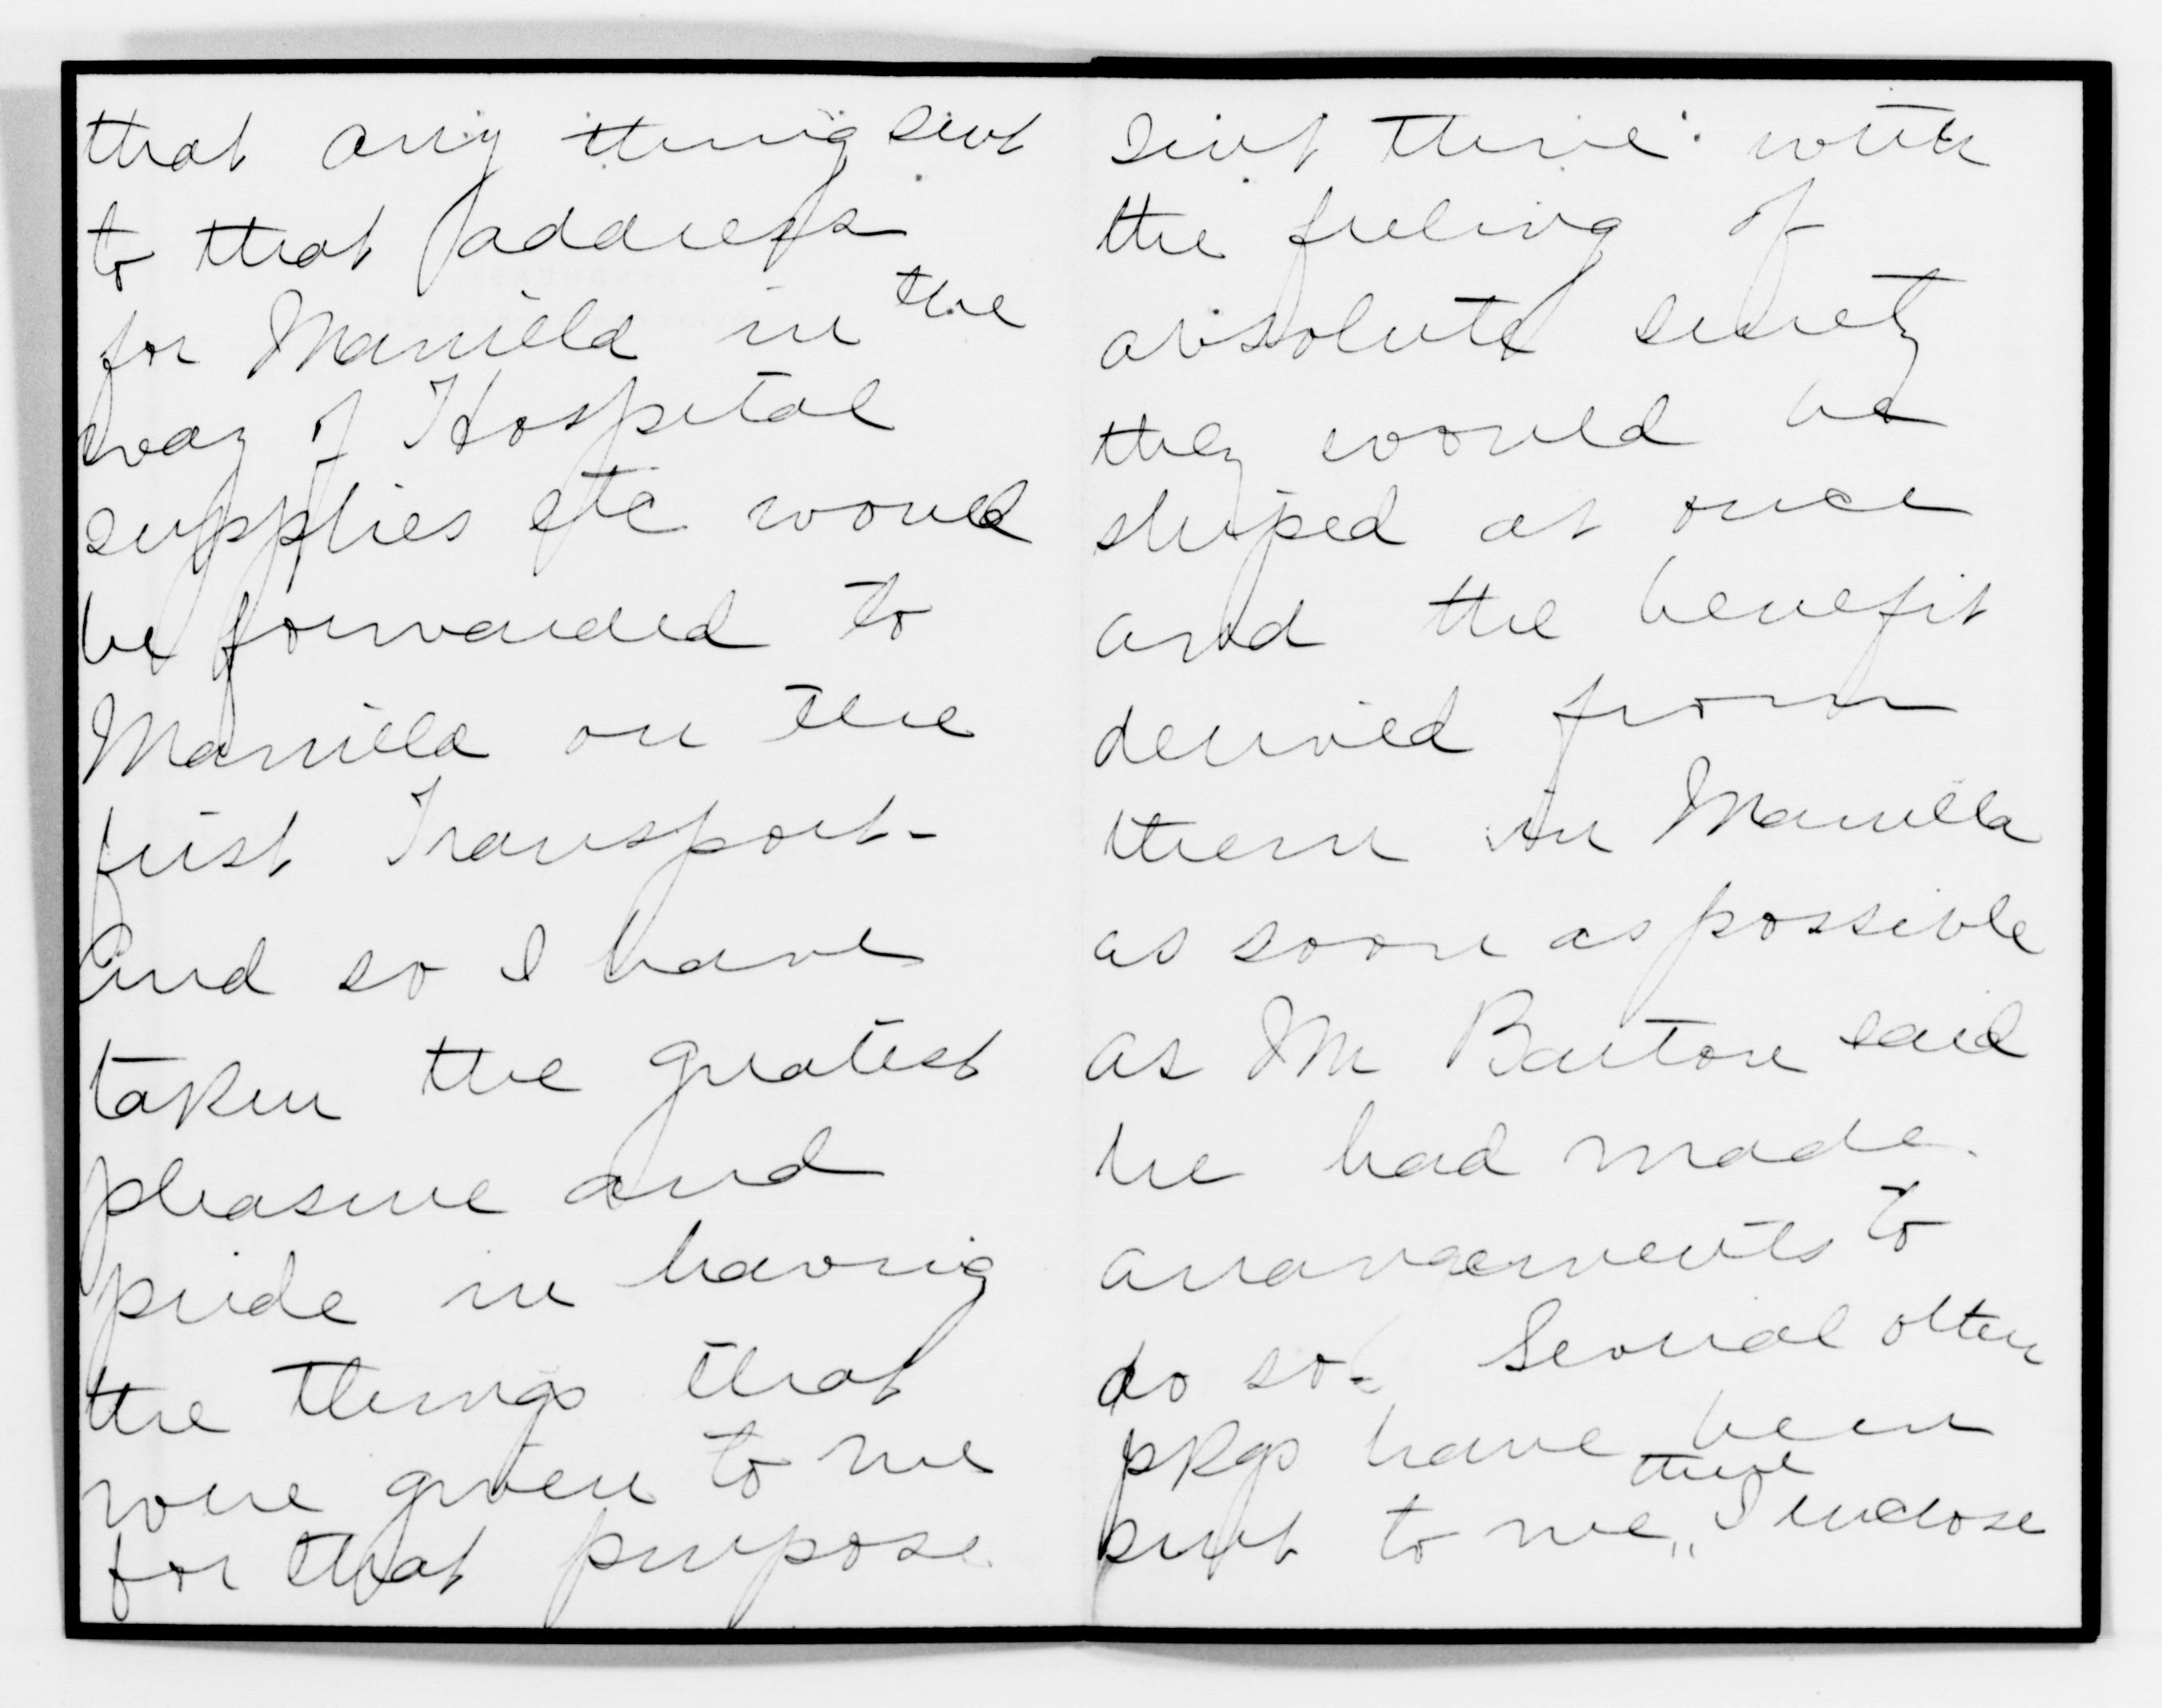 that any thing sent
to that address
for Manilla in the
way of Hospital
supplies etc would
be forwarded to
Manilla on the
first Transport-
And so I have
taken the greatest
pleasure and
pride in having
the things that
were given to me
for that purpose
sent there with
the feeling of
absolute surety
they would be
shiped at once
and the benefit
derived from
them in Manilla
as soon as possible
as Mr Barton said
he had made
arrangements to
do so. Several other
pkgs have been
sent to me there I enclose